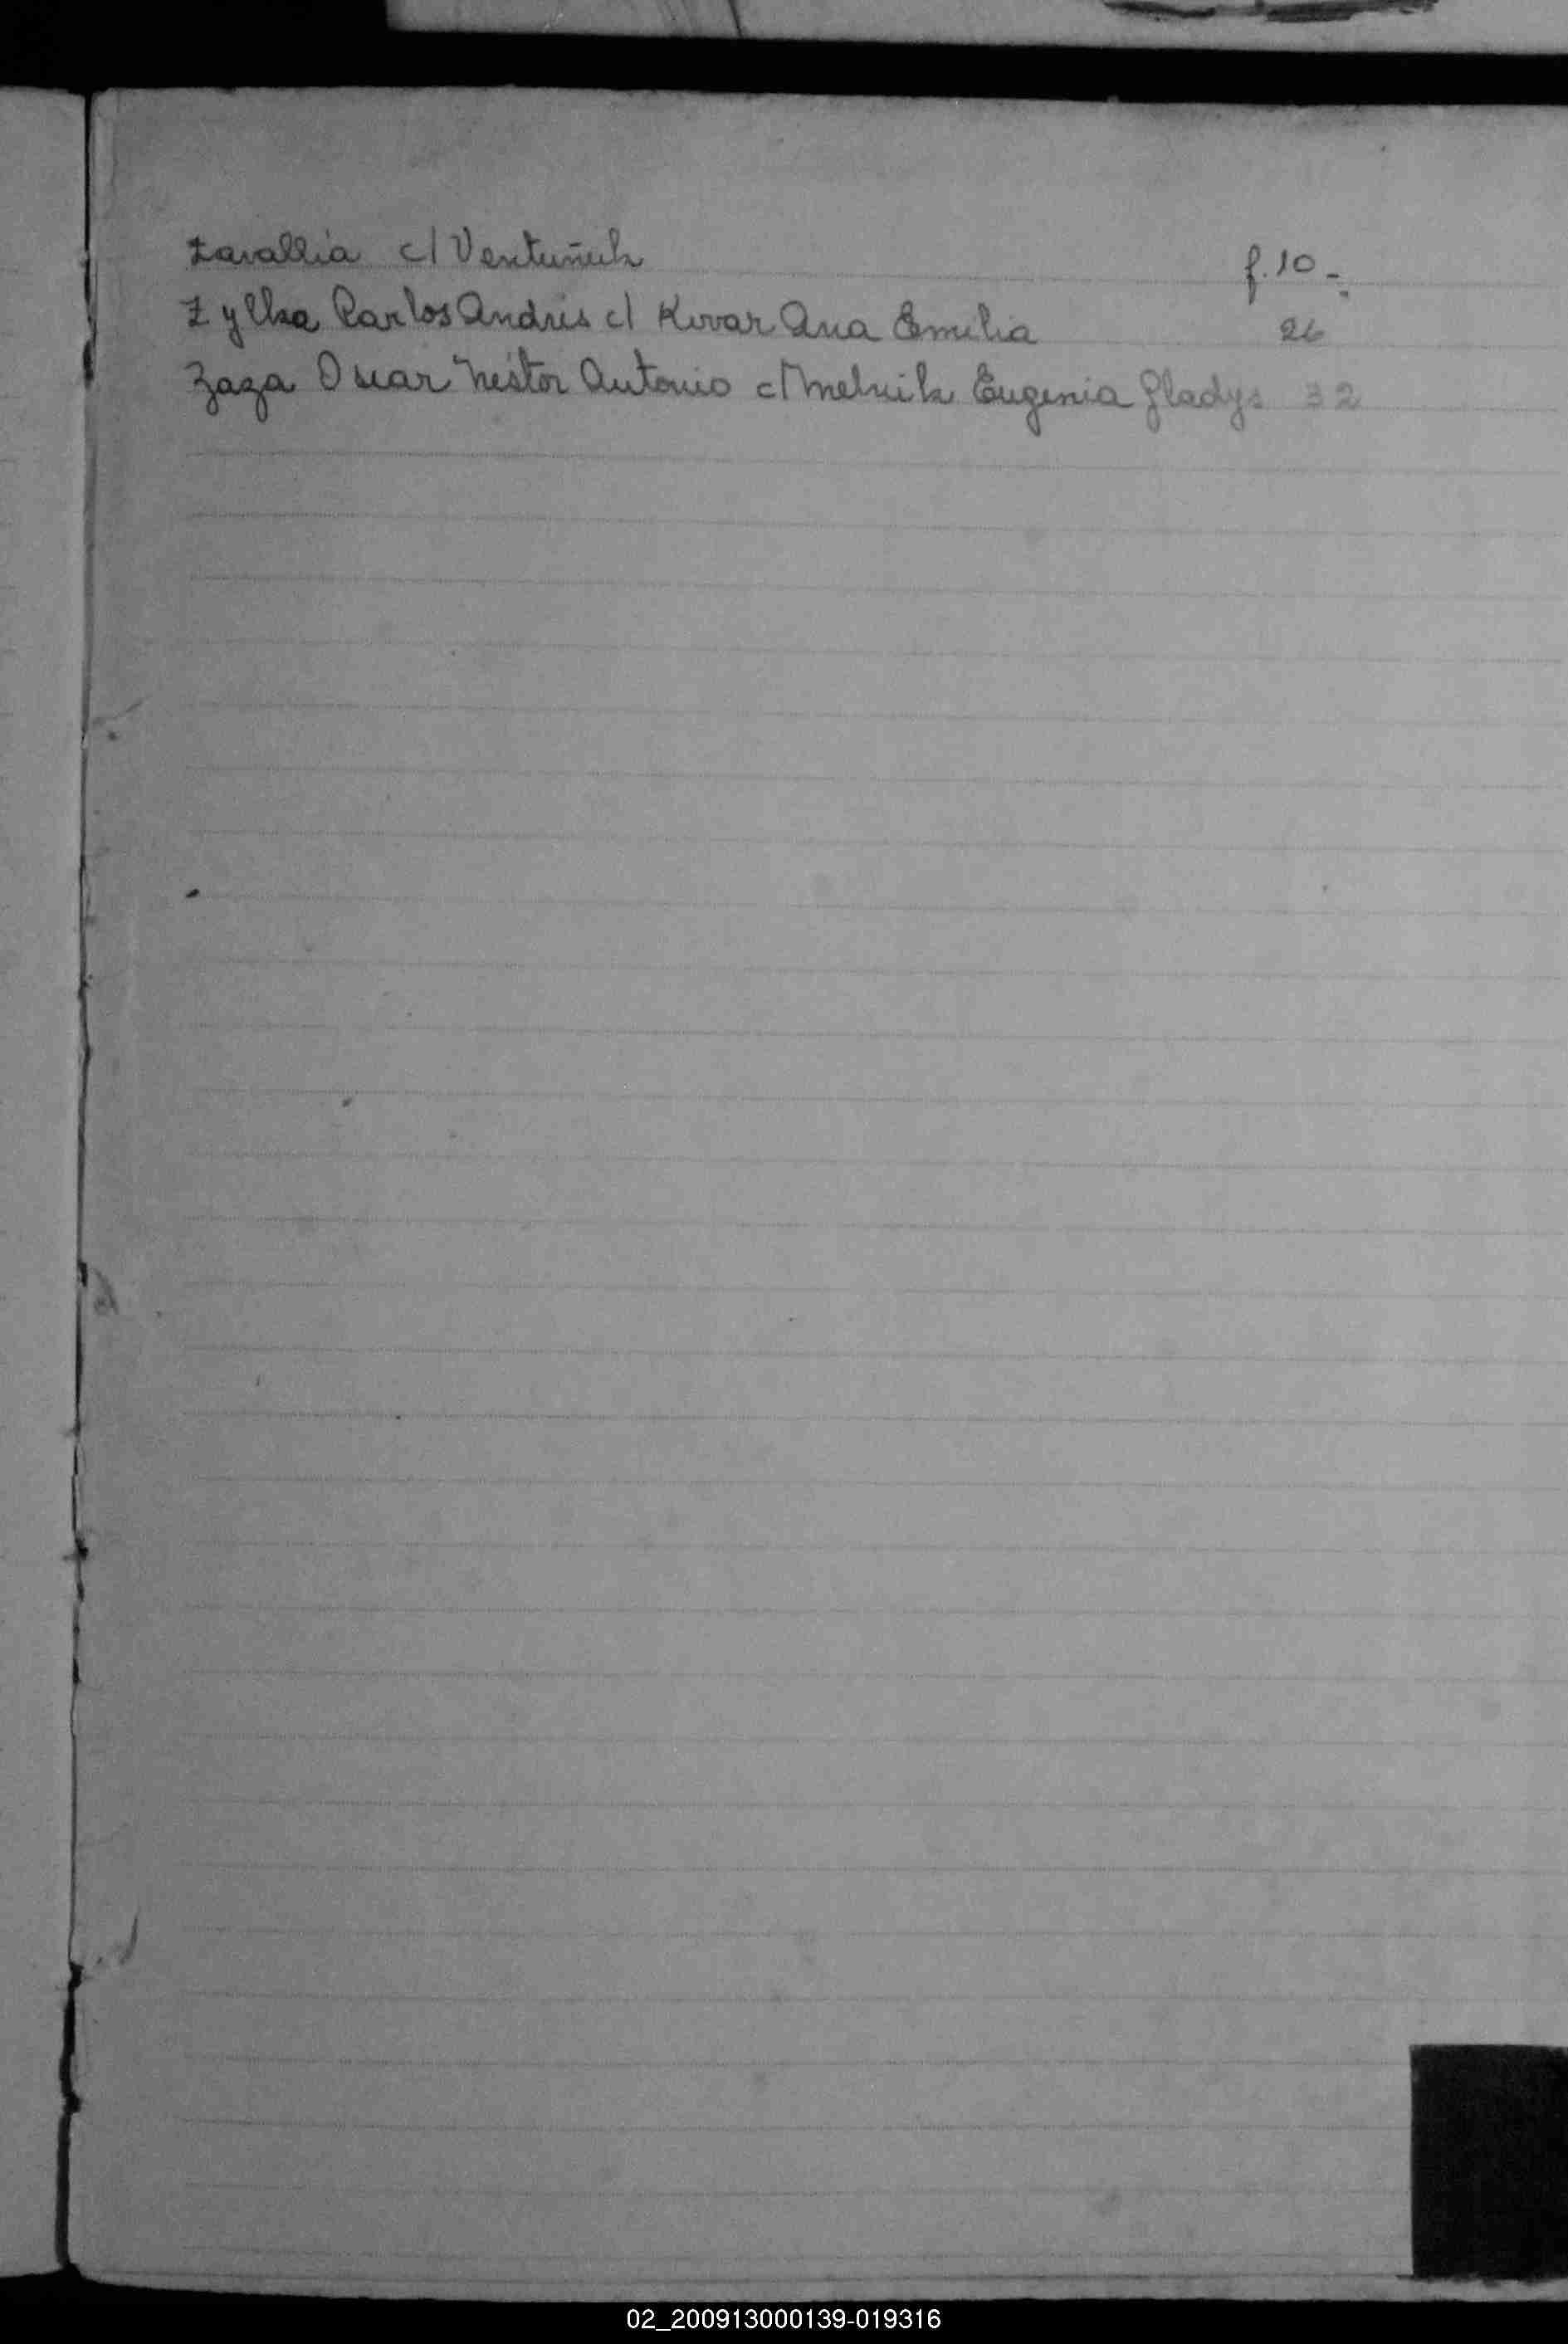 Zavallia c/ Ventuñuk f. 10 -
Zylka Carlos Andrés c/ Kovar Ana Emilia 26
Zaza Oscar Néstor Antonio c/ Melnik Eugenia Gladys 32
02_200913000139-019316